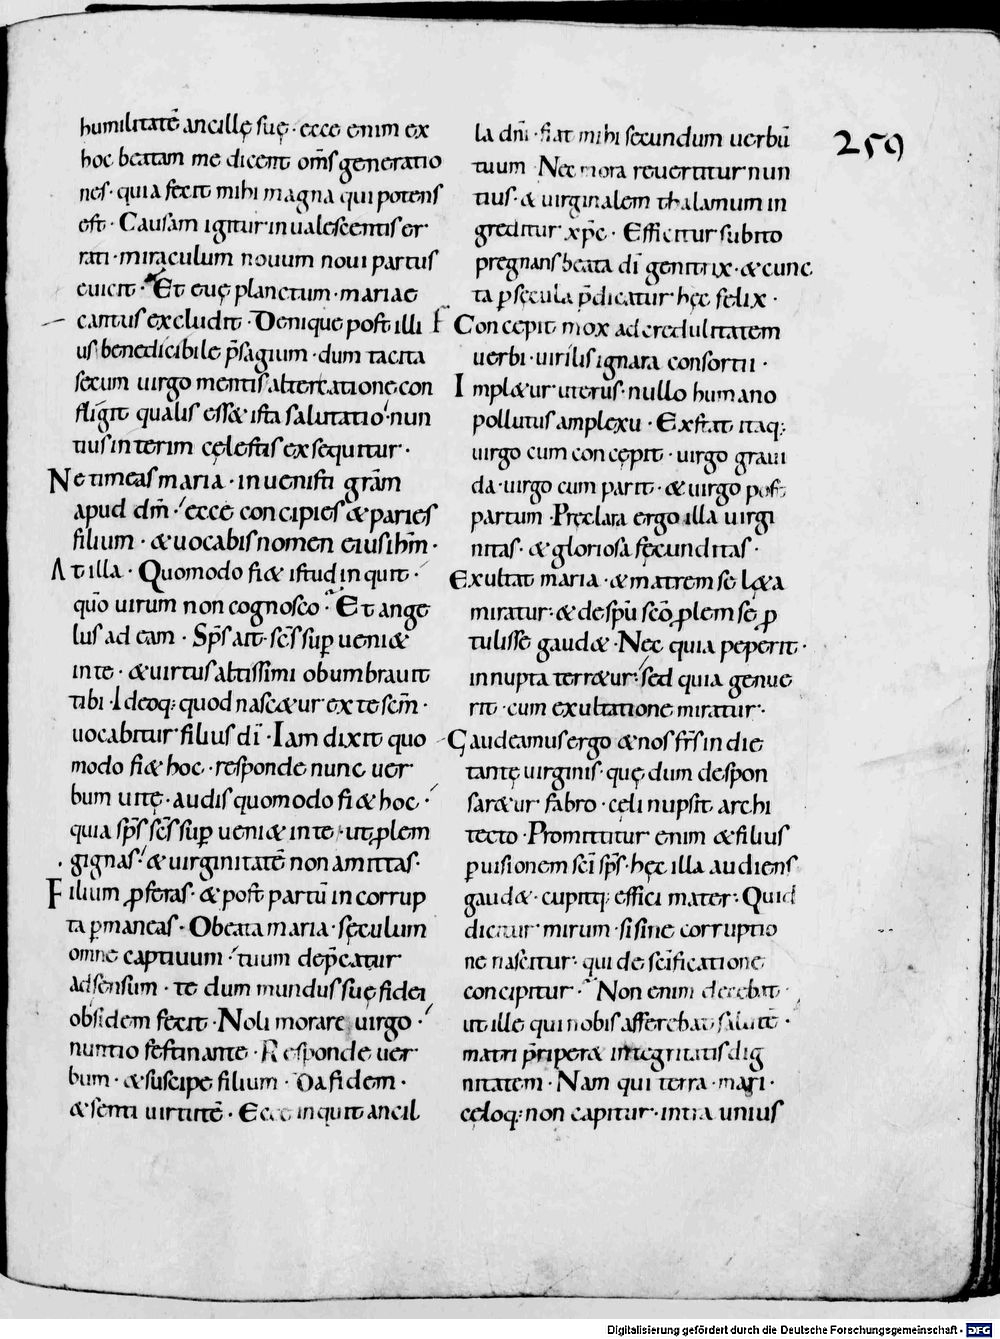 humilitatē ancillę suę · ecce enim ex
hoc beatam me dicent om̄s generatio
nes · quia fecit mihi magna qui potens
est · Causam igitur inualescentis er
rati · miraculum nouum noui partus
euicit · Et euę planctum · mariae
cantus excludit · Denique post illi
us benedicibile p̄sagium · dum tacita
secum uirgo mentis altercatione con
fligit qualis ess& ista salutatio · nun
tius interim cęlestis exsequitur ·
Ne timeas maria · inuenisti grām
apud dm̄ · ecce concipies & paries
filium · & uocabis nomen eius ihm̄ ·
At illa · Quomodo fi& istud inquit ·
quō uirum non cognosco · Et ange
lus ad eam · Sp̄s ait sc̄s sup̱ ueni&
in te · & uirtus altissimi obumbrauit
tibi · Ideoq; quod nasc&ur ex te scm̄ ·
uocabitur filius dī · Iam dixit quo
modo fi& hoc · responde nunc uer
bum uitę · audis quomodo fi& hoc ·
quia sp̄s sc̄s sup̱ ueni& in te · ut p̱lem
gignas · & uirginitatē non amittas ·
Filium p̱feras · & post partū incorrup
ta p̱maneas · O beata maria · sęculum
omne captiuum · tuum dep̄catur
adsensum · te dum mundus suę fidei
obsidem fecit · Noli morare uirgo ·
nuntio festinante · Responde uer
bum · & suscipe filium · Da fidem ·
& senti uirtutē · Ecce inquit ancil
259
la dn̄i · fiat mihi secundum uerbū
tuum · Nec mora reuertitur nun
tius · & uirginalem thalamum in
greditur xp̄c · Efficitur subito
pregnans beata dī genitrix · & cunc
ta p̱ sęcula p̄dicatur hęc felix ·
Concepit mox ad credulitatem
uerbi · uirilis ignara consortii ·
Impl&ur uterus · nullo humano
pollutus amplexu · Exstat itaq;
uirgo cum concępit · uirgo graui
da · uirgo cum parit · & uirgo post
partum · Pręclara ergo illa uirgi
nitas · & gloriosa fęcunditas ·
Exultat maria · & matrem se l&a
miratur · & de spū scō p̱lem se p̱
tulisse gaud& · Nec quia peperit ·
innupta terr&ur · sed quia genue
rit · cum exultatione miratur ·
Gaudeamus ergo & nos frs̄ in die
tantę uirginis · quę dum despon
sar&ur fabro · cęli nupsit archi
tecto · Promittitur enim & filius
p̱ uisionem scī sp̄s · hęc illa audiens
gaud& · cupitq; effici mater · Quid
dicitur mirum · si sine corruptio
ne nascitur · qui de scīficatione
concipitur · Non enim decebat ·
ut ille qui nobis afferebat salutē ·
matri p̄riper& integritatis dig
nitatem · Nam qui terra · mari ·
cęloq; non capitur · intra unius
Digitalisierung gefördert durch die Deutsche Forschungsgemeinschaft · DFG